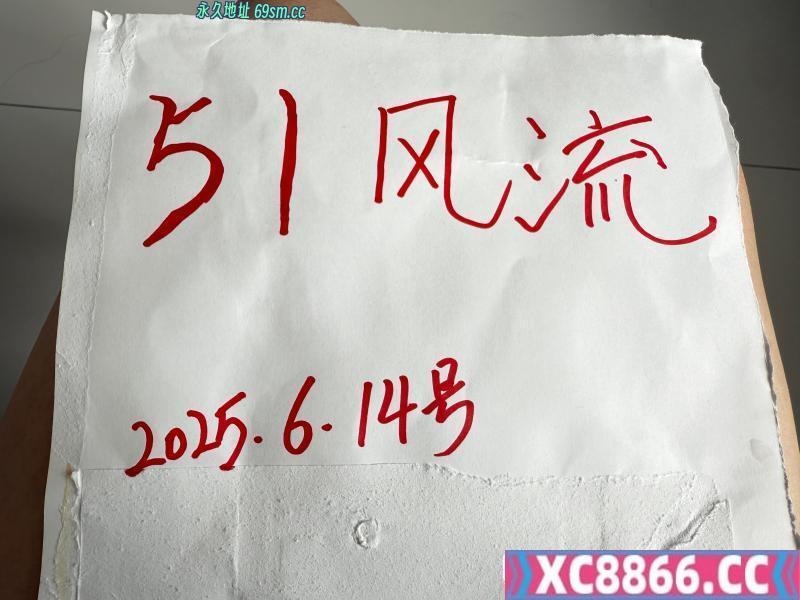 永久地址 69sm.cc
51风流
2025.6.14号
XC8866.CC